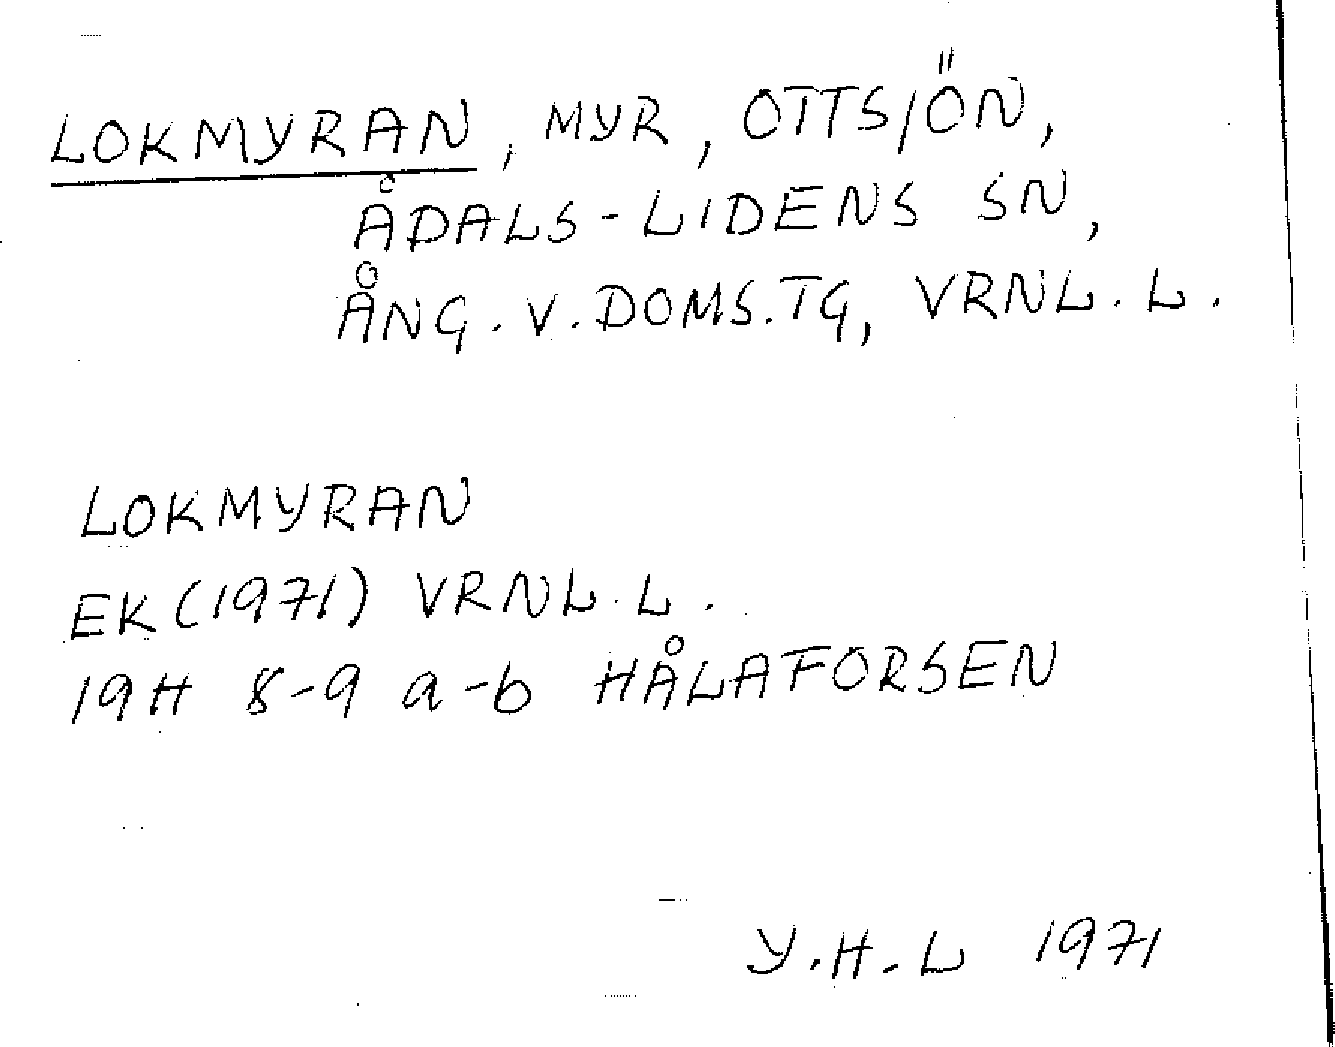 LOKMYRAN, MYR, OTTSJÖN,
ÅDALS-LIDENS SN,
ÅNG. V. DOMS.TG, VRNL. L.
LOKMYRAN
EK (1971) VRNL. L.
19H 8-9 a-b HÅLAFORSEN
Y.H.L 1971